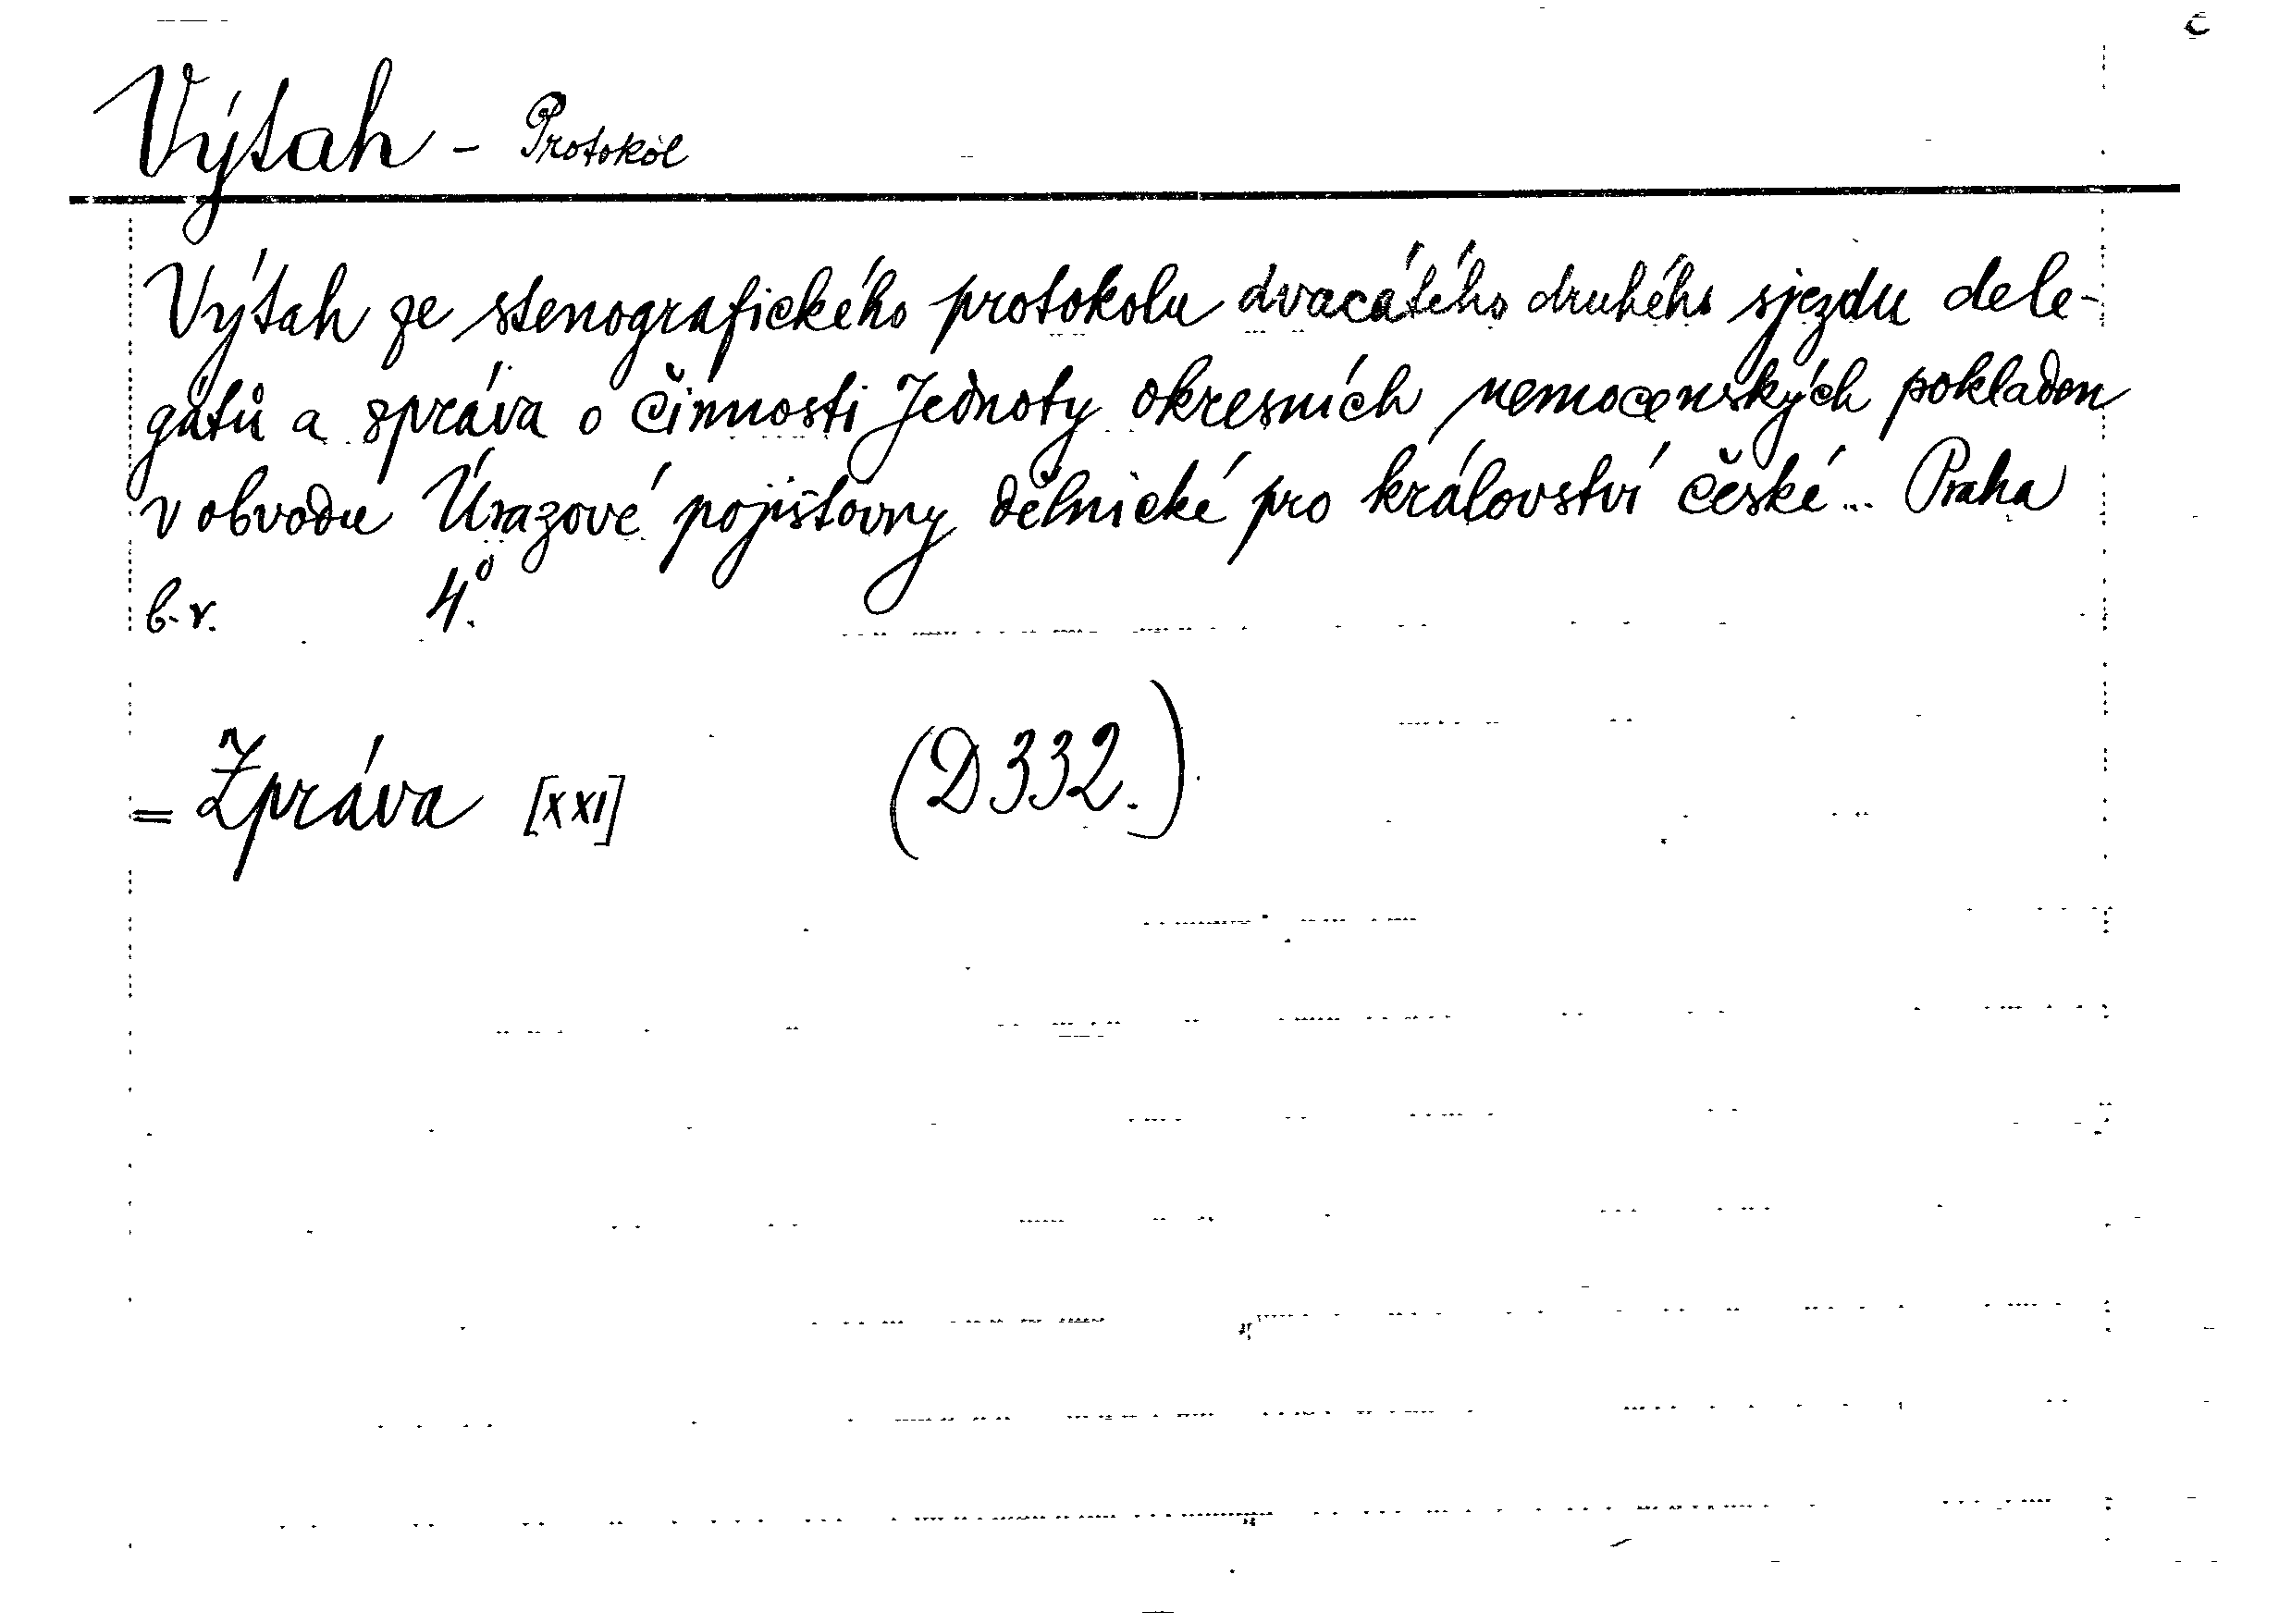 Výtah - Protokol
Výtah ze stenografického protokolu dvacátého druhého sjezdu dele-
gátů a zpráva o činnosti Jednoty okresních nemocenských pokladen
v obvodu Úrazové pojišťovny dělnické pro království české... Praha
b.r. 4°.
= Zpráva [XXI] (D 332.)